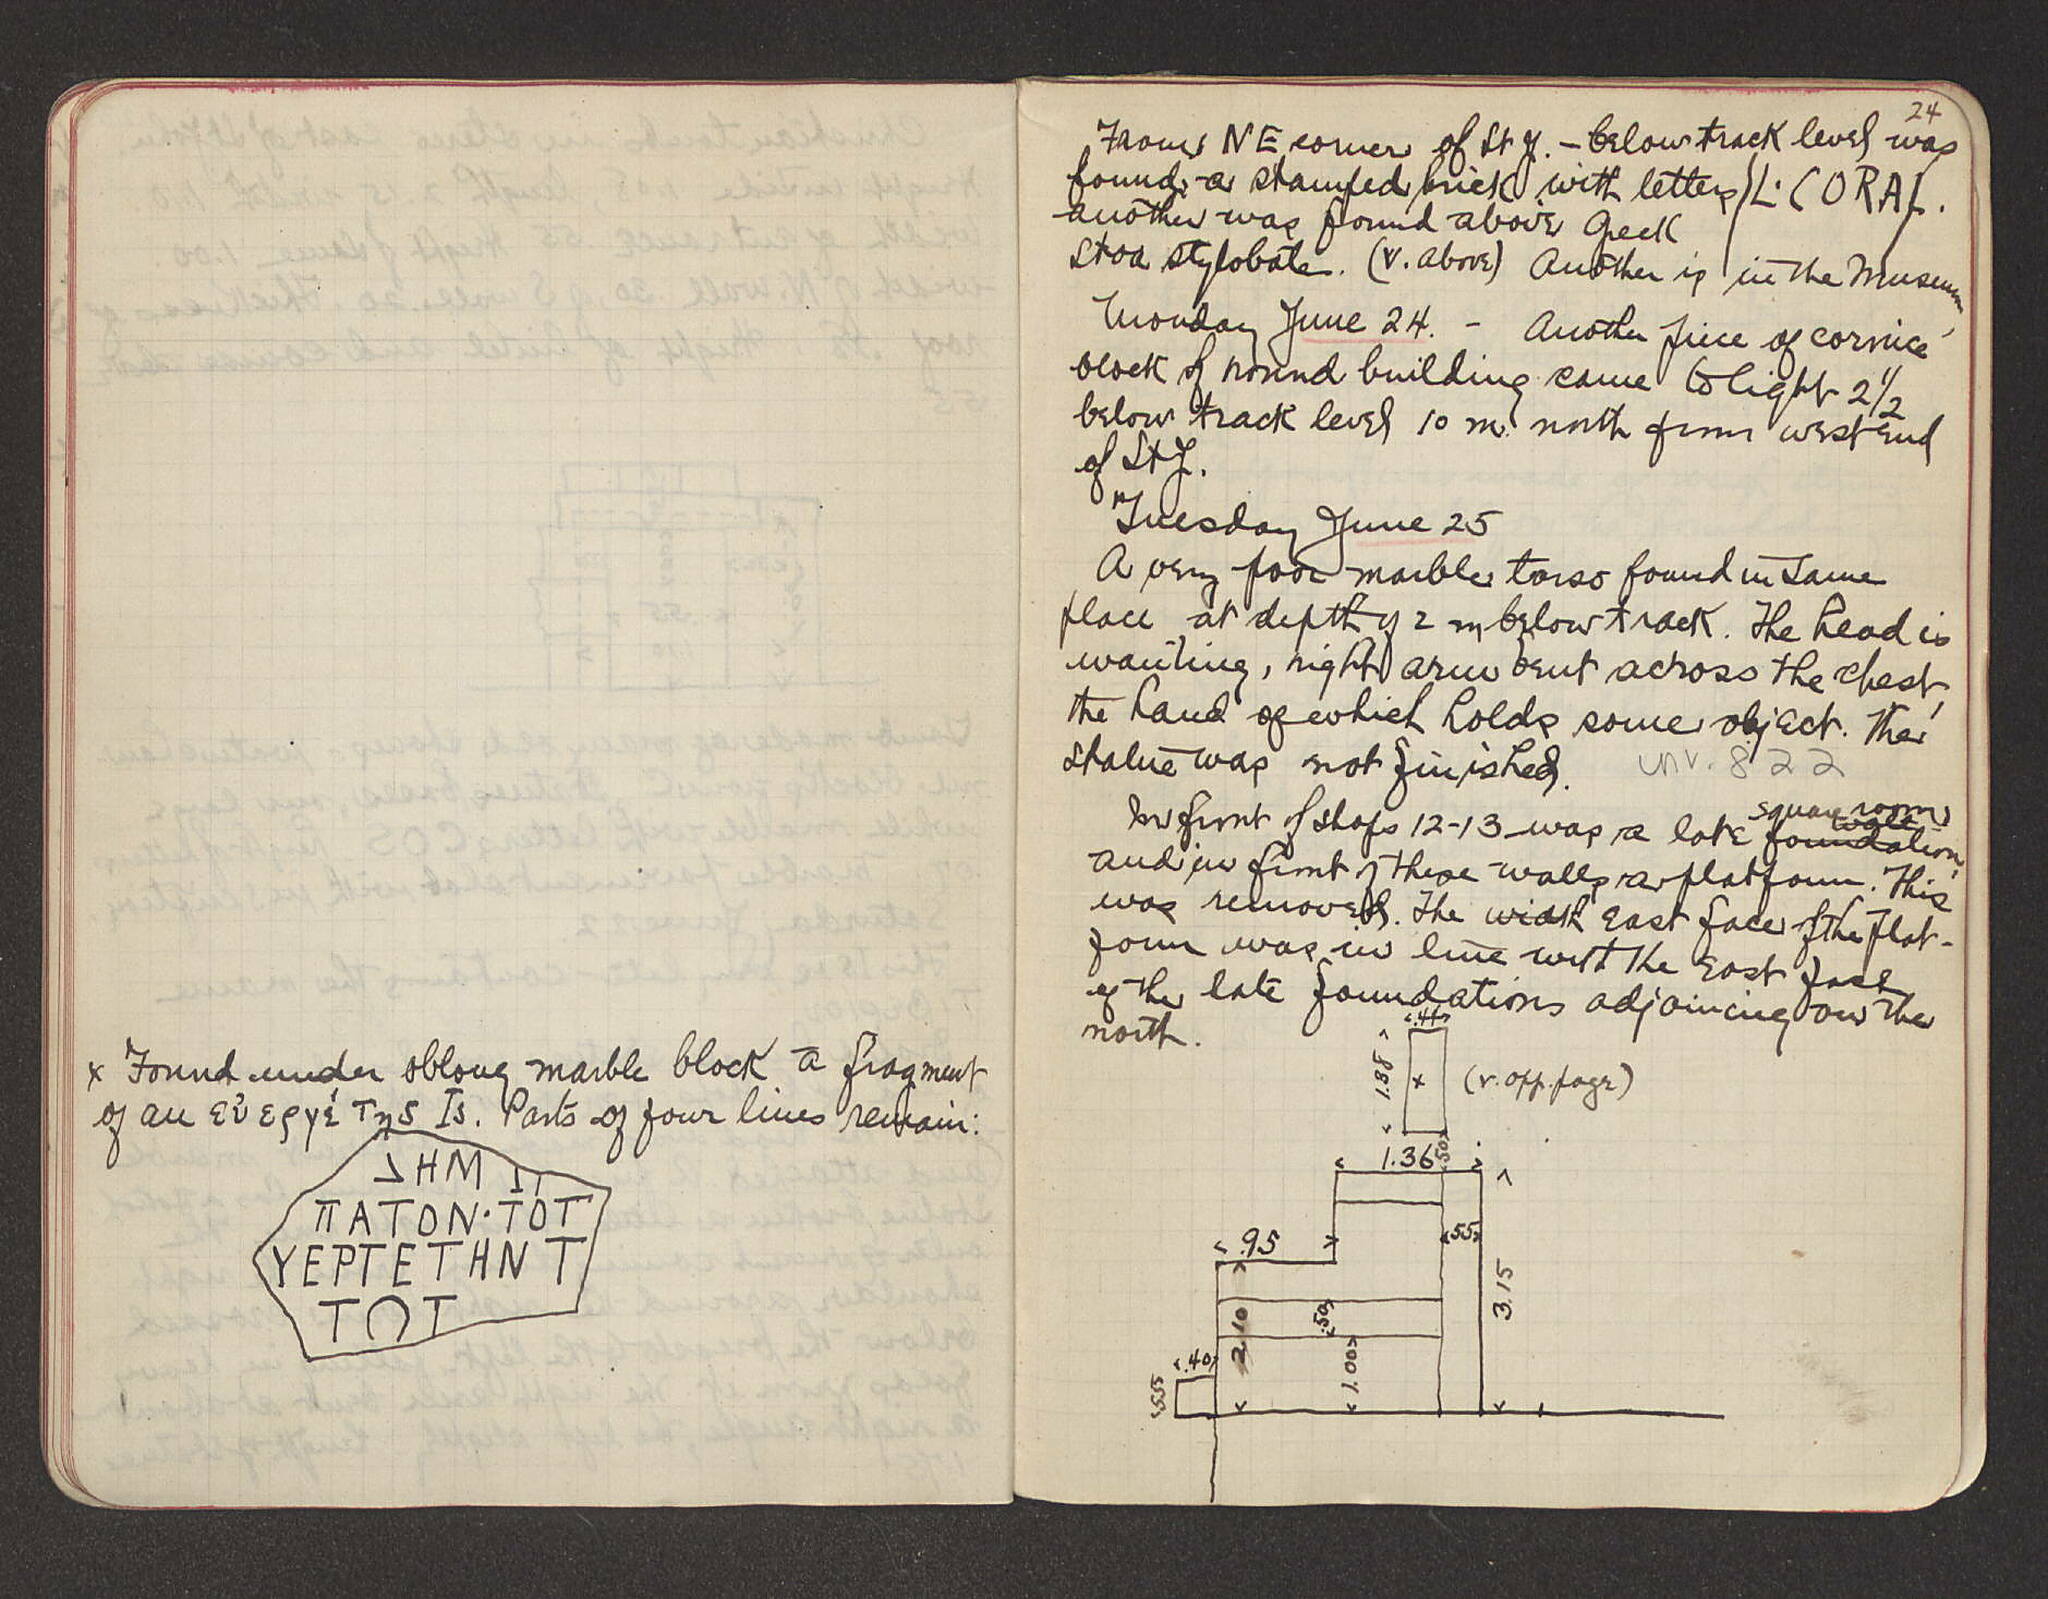 x Found under oblong marble block a fragment
of an εὐεργέτης Is. Parts of four lines remain:
ΗΜ
ΠΑΤΟΝ·ΤΟΤ
ΥΕΡΓΕΤΗΝ Τ
ΤΟΤ
24
From NE corner of St J. – below track level was
found a stamped brick with letters L·CORAL.
another was found above Greek
Stoa stylobate. (v. above) Another is in the Museum
Monday June 24. – Another piece of cornice
block of round building came to light 2 1/2
below track level 10 m. north from west end
of St J.
Tuesday June 25
A very poor marble torso found in same
place at depth of 2 m below track. The head is
wanting, right arm bent across the chest,
the hand of which holds some object. The
statue was not finished. inv. 822
square room
In front of shops 12-13 was a late foundation
and in front of these walls a platform. This
was removed. The width East face of the plat-
form was in line with the East face
of the late foundations adjoining on the
north.
.44
1.88
x
(v. opp. page)
.50
1.36
.95
.55
3.15
2.10
.50
1.00
.40
.55